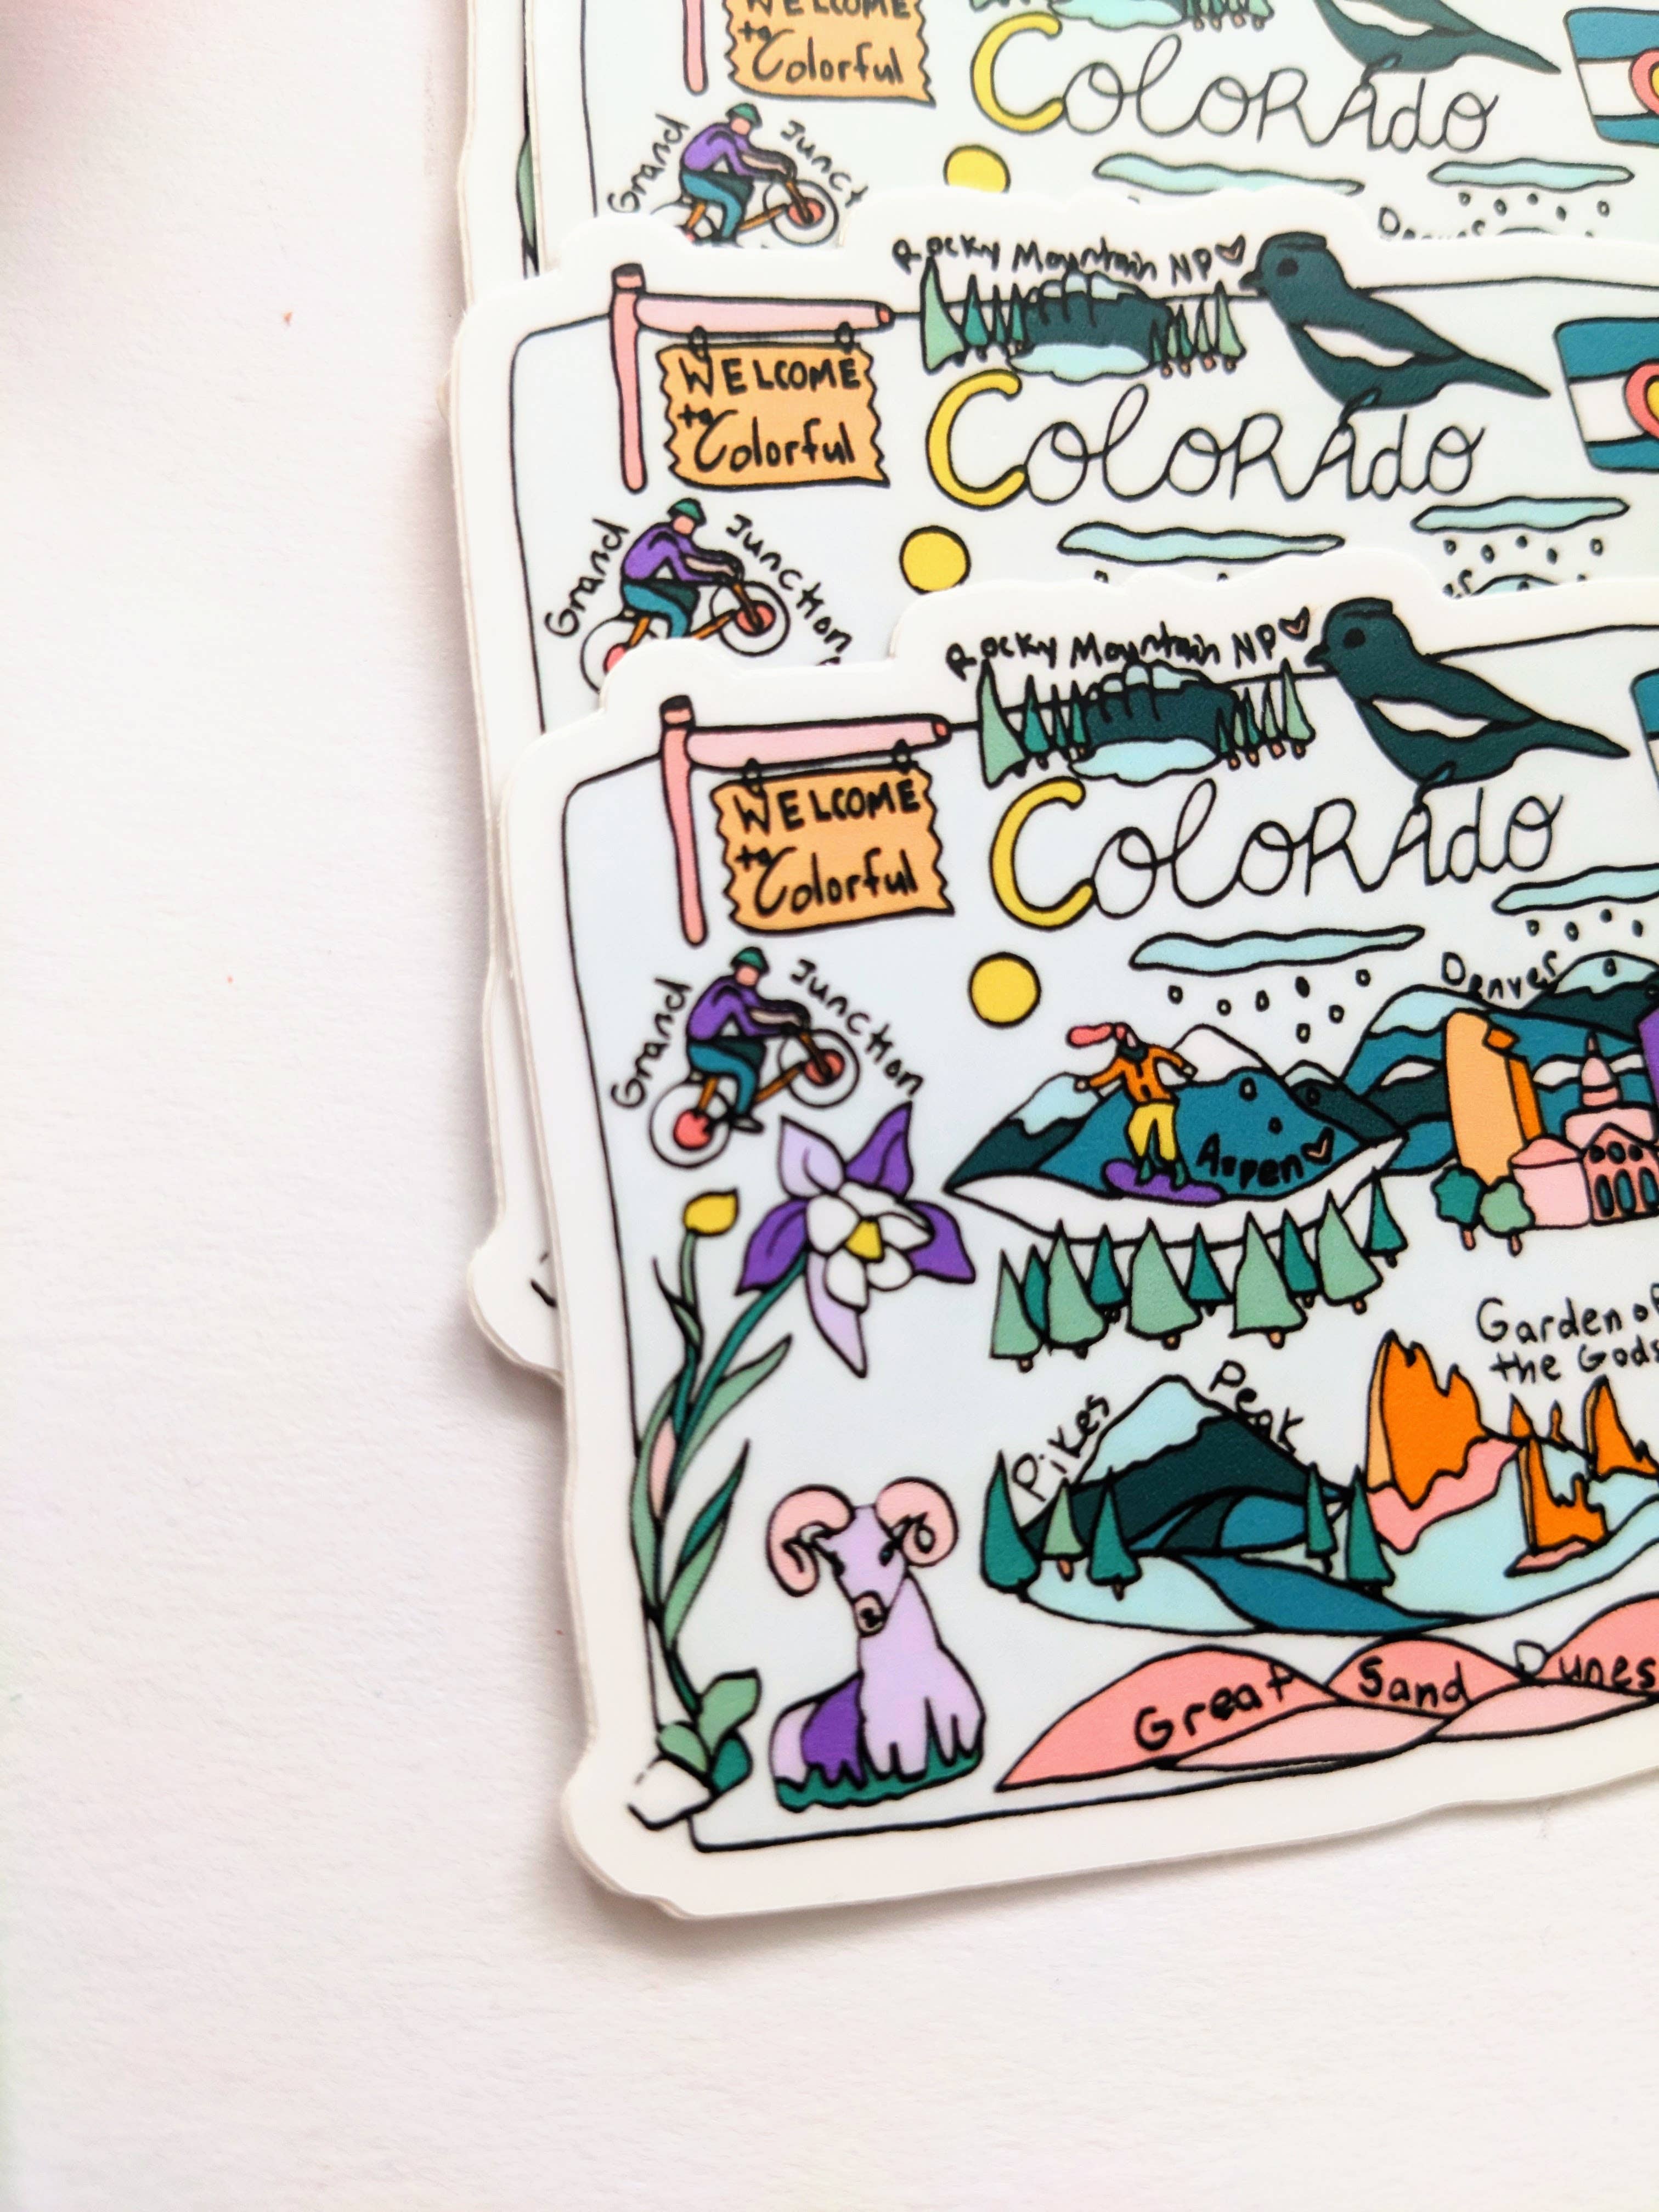 WELCOME
to
Colorful
Colorado
Grand Junct
Denver
Rocky Mountain NP
WELCOME
to
Colorful
Colorado
Grand Junction
Rocky Mountain NP
WELCOME
to
Colorful
Colorado
Grand Junction
Denver
Aspen
Garden of
the Gods
Pikes Peak
Great Sand Dunes